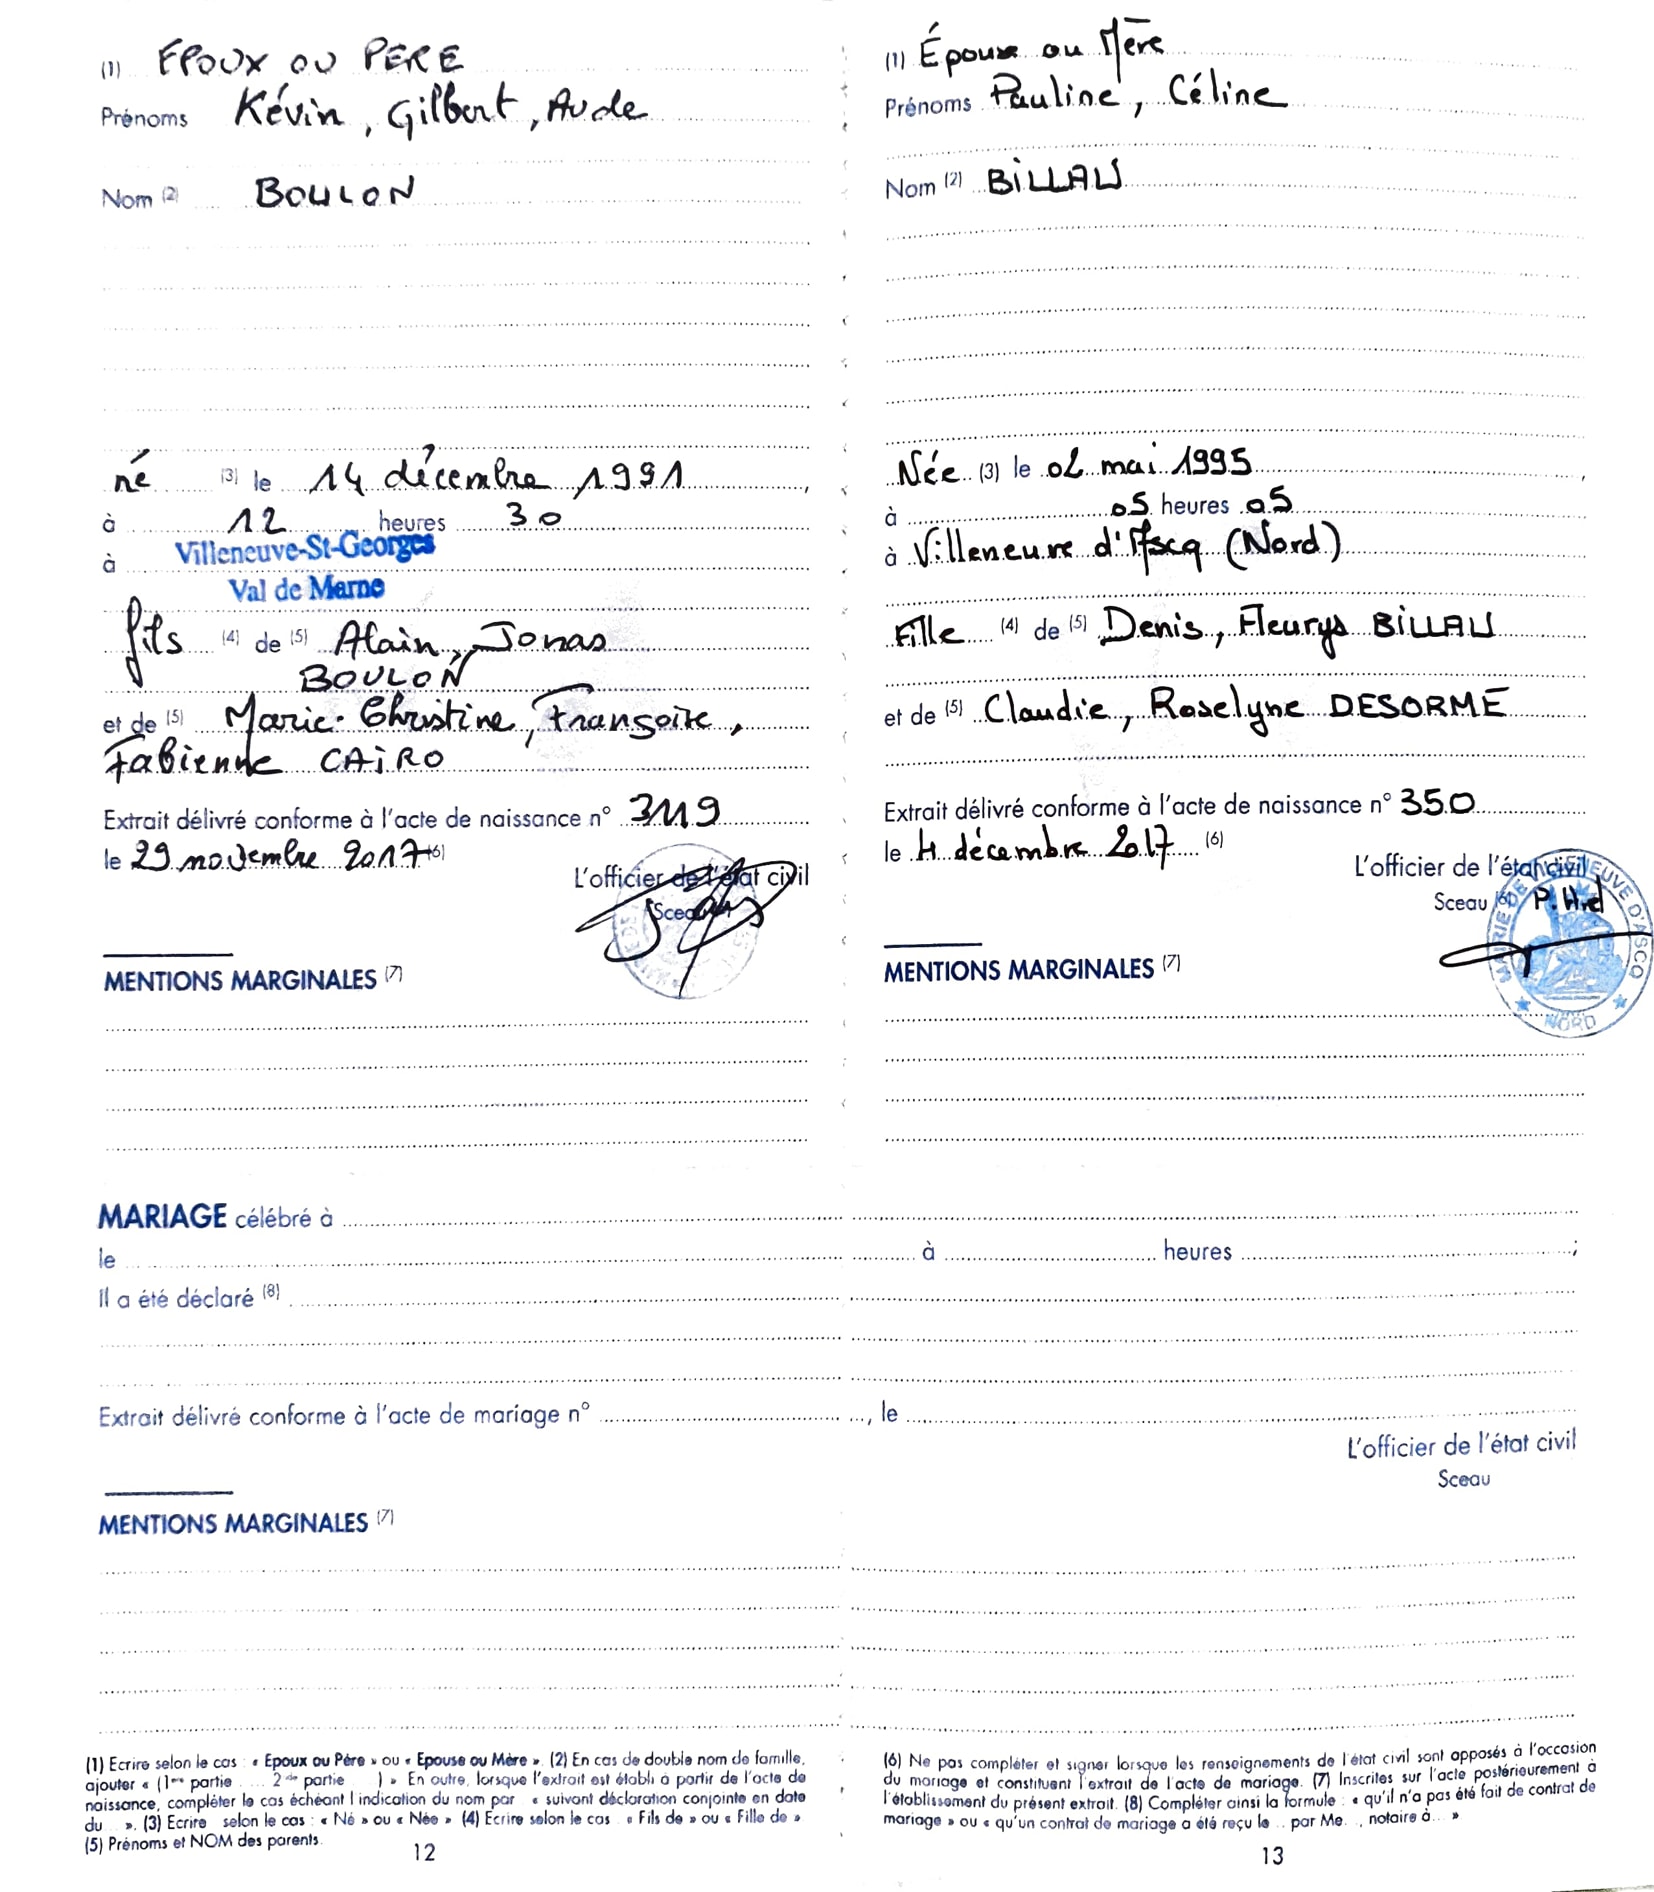 (1) EPOUX OU PERE
Prénoms Kévin, Gilbert, Aude
Nom (2) BOULON
né (3) le 14 décembre 1991,
à 12 heures 30
à Villeneuve-St-Georges
Val de Marne
fils (4) de (5) Alain, Jonas
BOULON
et de (5) Marie-Christine, Françoise,
Fabienne CAIRO
Extrait délivré conforme à l'acte de naissance n° 3119
le 29 novembre 2017 (6)
L'officier de l'état civil
Sceau
MENTIONS MARGINALES (7)
(1) Épouse ou Mère
Prénoms Pauline, Céline
Nom (2) BILLAU
Née (3) le 02 mai 1995,
à 05 heures 05
à Villeneuve d'Ascq (Nord)
Fille (4) de (5) Denis, Fleurys BILLAU
et de (5) Claudie, Roselyne DESORME
Extrait délivré conforme à l'acte de naissance n° 350
le 4 décembre 2017 (6)
L'officier de l'état civil
Sceau (6)
MAIRIE DE VILLENEUVE D'ASCQ
NORD
MENTIONS MARGINALES (7)
MARIAGE célébré à
le à heures ;
Il a été déclaré (8)
Extrait délivré conforme à l'acte de mariage n° , le
L'officier de l'état civil
Sceau
MENTIONS MARGINALES (7)
(1) Ecrire selon le cas : « Epoux ou Père » ou « Epouse ou Mère ». (2) En cas de double nom de famille,
ajouter « (1ère partie .... 2de partie ) » En outre, lorsque l'extrait est établi à partir de l'acte de
naissance, compléter le cas échéant l'indication du nom par « suivant déclaration conjointe en date
du ». (3) Ecrire selon le cas : « Né » ou « Née » (4) Ecrire selon le cas « Fils de » ou « Fille de »
(5) Prénoms et NOM des parents.
12
(6) Ne pas compléter et signer lorsque les renseignements de l'état civil sont apposés à l'occasion
du mariage et constituent l'extrait de l'acte de mariage. (7) Inscrites sur l'acte postérieurement à
l'établissement du présent extrait. (8) Compléter ainsi la formule : « qu'il n'a pas été fait de contrat de
mariage » ou « qu'un contrat de mariage a été reçu le .. par Me. ., notaire à... »
13